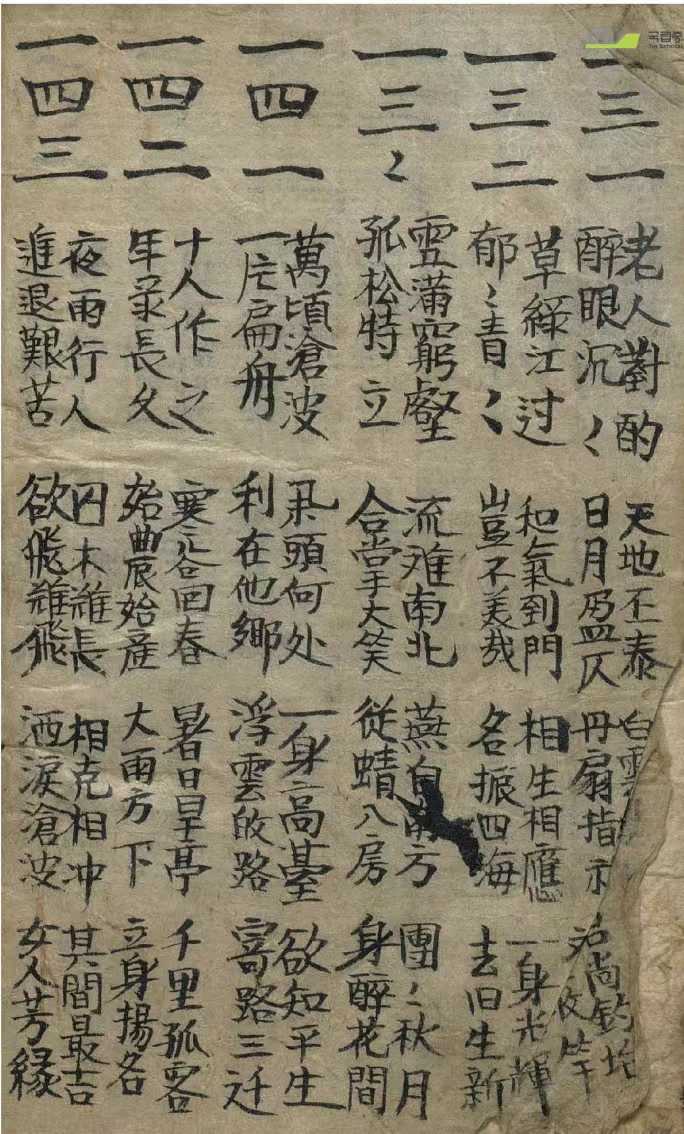 국립중
一三一
老人對酌 天地丕泰 白雲
醉眼沉〻 日月盈仄 丹扇指示 收竿
一三二
草綠江过 和氣到門 相生相應 一身光輝
郁〻青〻 豈不美哉 名振四海 去旧生新
一三〻
雪滿窮壑 流难南北 燕自南方 團〻秋月
孤松特立 合掌大笑 從蜻入房 身醉花間
一四一
萬頃滄波 頭何处 一身高臺 欲知平生
一片扁舟 利在他鄉 浮雲故路 寄路三迁
一四二
十人作之 寒谷回春 暑日旱亭 千里孤客
年彔長久 始農始産 大雨方下 立身揚名
一四三
夜雨行人 囚木难長 相克相冲 其間最吉
進退艱苦 欲飛难飛 洒淚滄波 女人芳緣